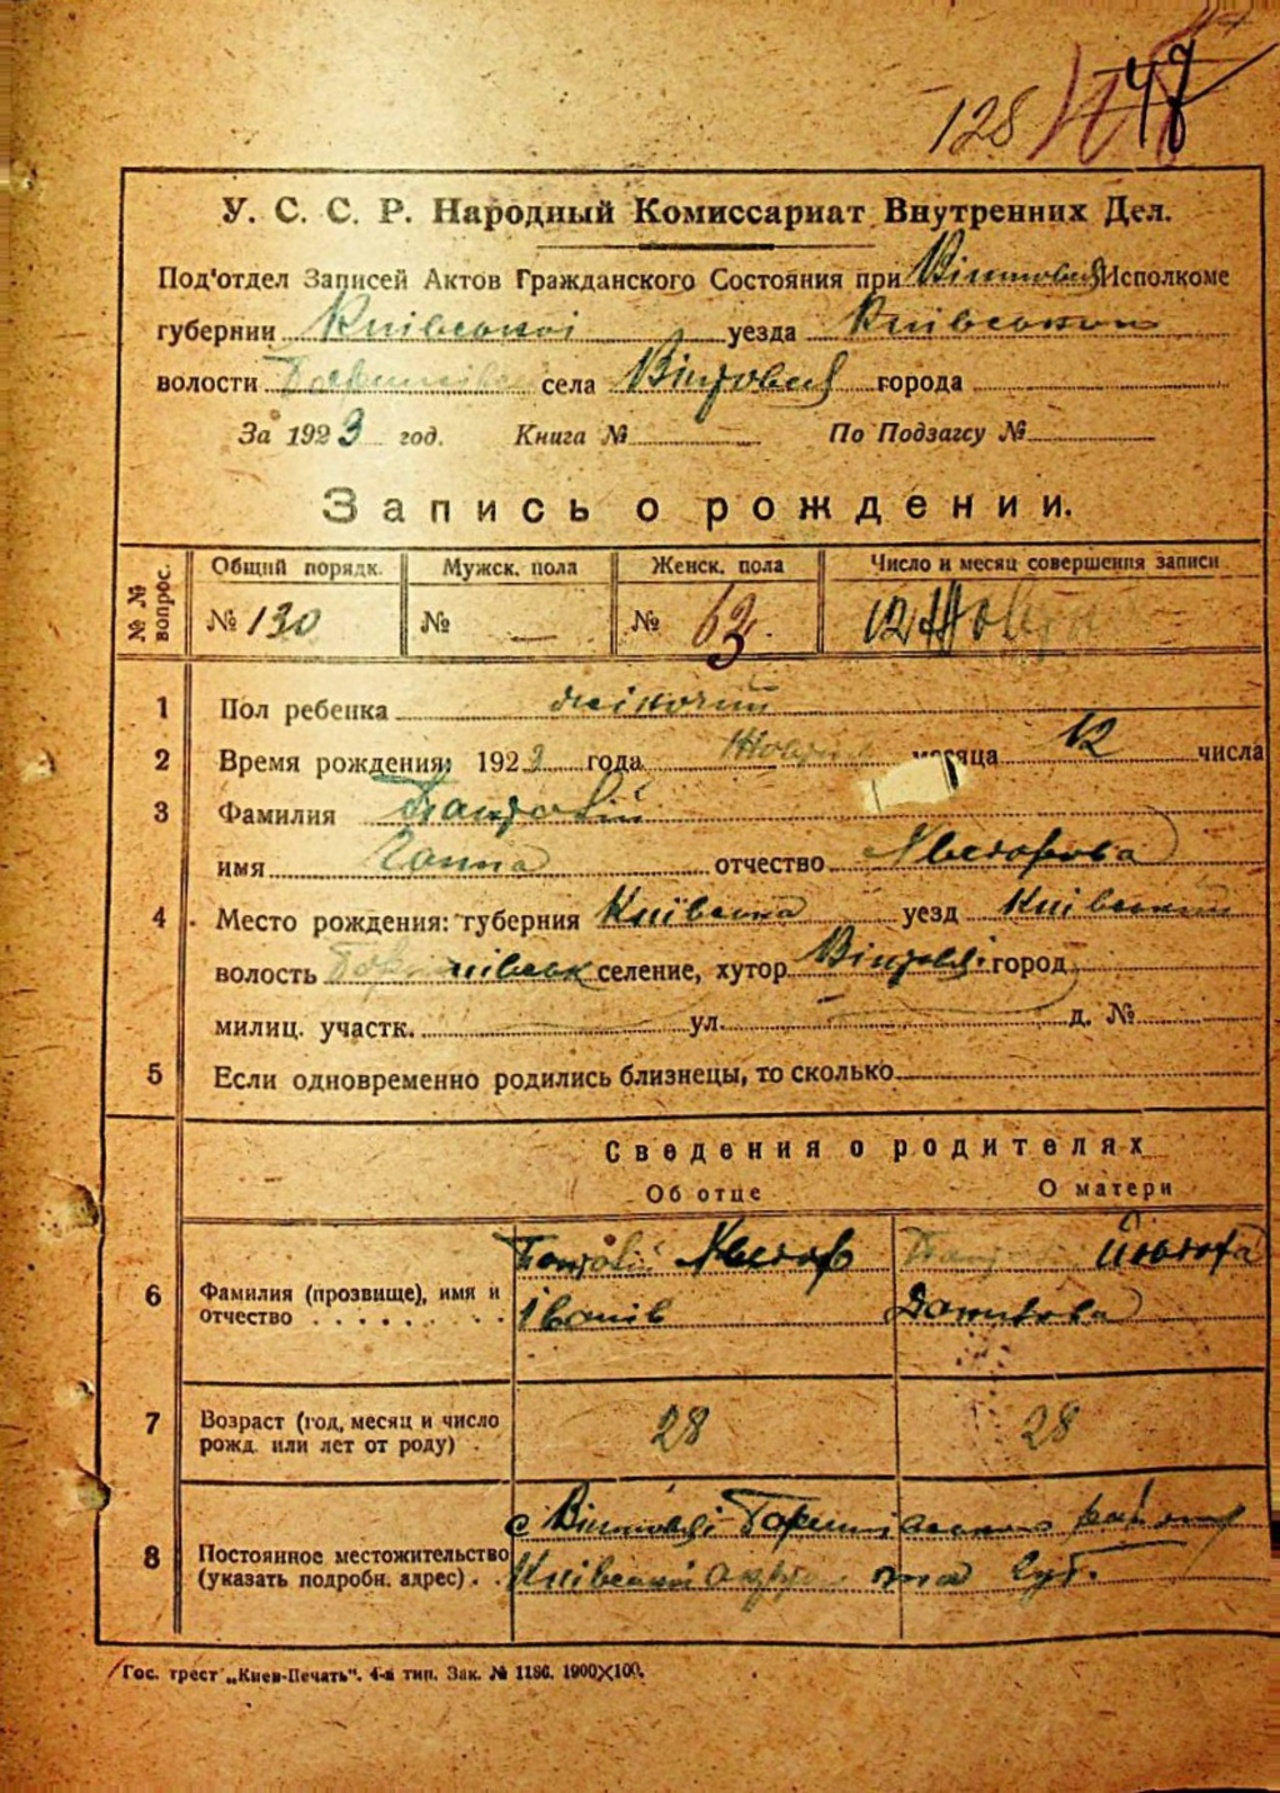 128 47
У. С. С. Р. Народный Комиссариат Внутренних Дел.
Под'отдел Записей Актов Гражданского Состояния при Исполкоме
губернии Київської уезда Київського
волости села города
За 1923 год. Книга № По Подзагсу №
Запись о рождении.
№ № вопрос. Общий порядк. Мужск. пола Женск. пола Число и месяц совершения записи
№ 130 № — № 63. 12 Жовтн
1 Пол ребенка жіночий
2 Время рождения: 1923 года Жовтня месяца 12 числа
3 Фамилия
имя Ганна отчество Несторова
4 Место рождения: губерния Київська уезд Київський
волость селение, хутор город
милиц. участк. ул. д. №
5 Если одновременно родились близнецы, то сколько
Сведения о родителях
Об отце О матери
6 Фамилия (прозвище), имя и отчество Нестор
Іванів
7 Возраст (год, месяц и число рожд. или лет от роду) 28 28
8 Постоянное местожительство (указать подробн. адрес) с району
Київської округи та губ.
Гос. трест „Киев-Печать". 4-я тип. Зак. № 1186. 1900X100.